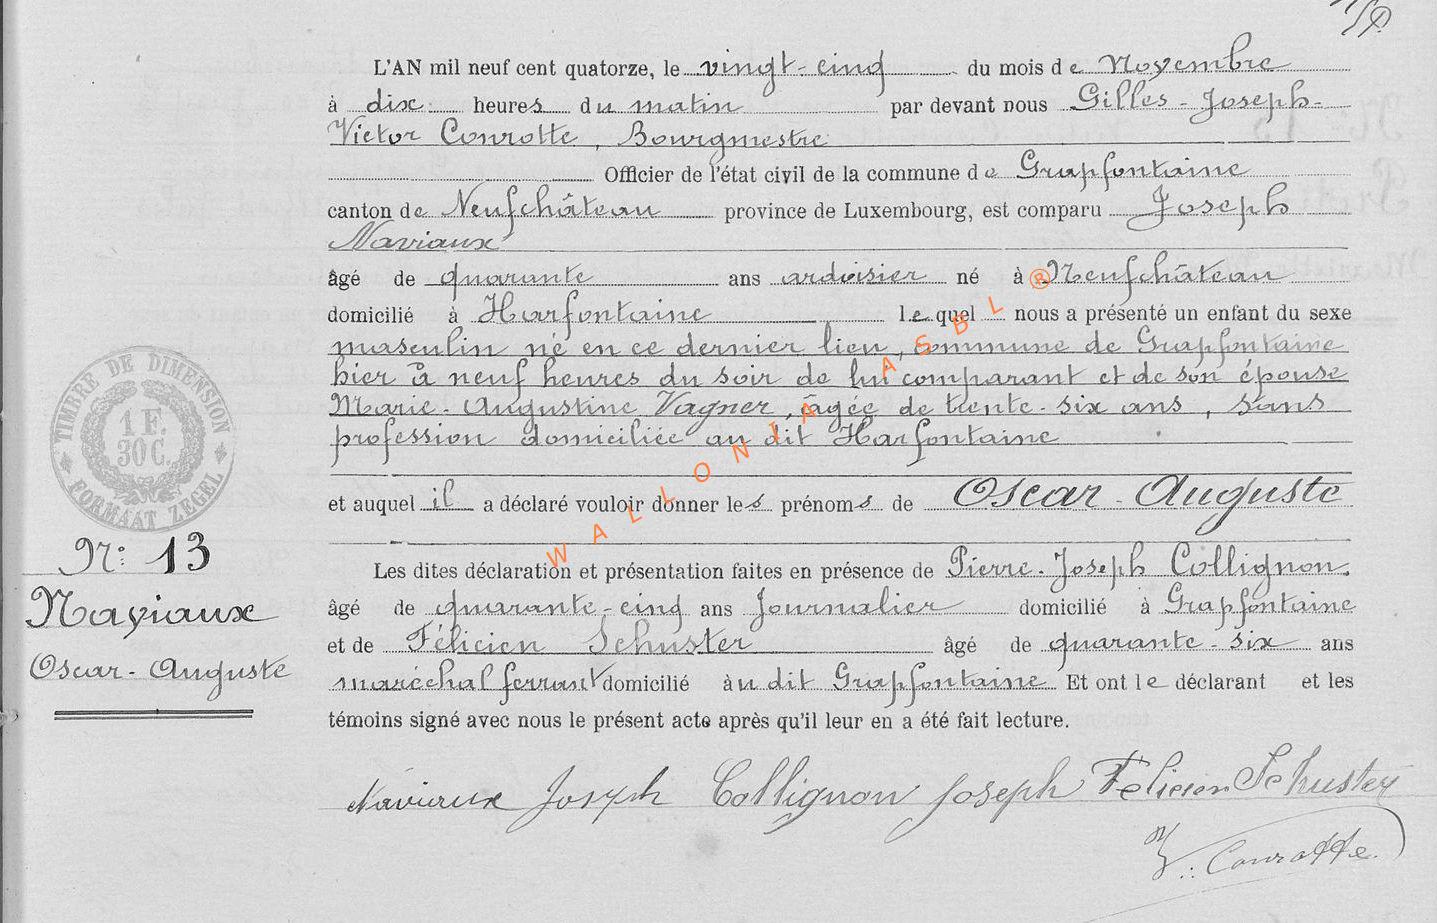 L'AN mil neuf cent quatorze, le vingt-cinq du mois de Novembre
à dix heures du matin par devant nous Gilles-Joseph-
Victor Conrotte, Bourgmestre
Officier de l'état civil de la commune de Grapfontaine
canton de Neufchâteau province de Luxembourg, est comparu Joseph
Naviaux
âgé de quarante ans ardoisier né à Neufchâteau
domicilié à Harfontaine lequel nous a présenté un enfant du sexe
masculin né en ce dernier lieu, commune de Grapfontaine
hier à neuf heures du soir de lui comparant et de son épouse
Marie-Augustine Vagner, âgée de trente-six ans, sans
profession domiciliée au dit Harfontaine
et auquel il a déclaré vouloir donner les prénoms de Oscar-Auguste
Les dites déclaration et présentation faites en présence de Pierre-Joseph Collignon,
âgé de quarante-cinq ans Journalier domicilié à Grapfontaine
et de Félicien Schuster âgé de quarante-six ans
maréchal ferrant domicilié au dit Grapfontaine Et ont le déclarant et les
témoins signé avec nous le présent acte après qu'il leur en a été fait lecture.
Naviaux Joseph Collignon Joseph Félicien Schuster
V. Conrotte
TIMBRE DE DIMENSION
1 F.
30 C.
FORMAAT ZEGEL
N: 13
Naviaux
Oscar-Auguste
WALLONIA ASBL ®